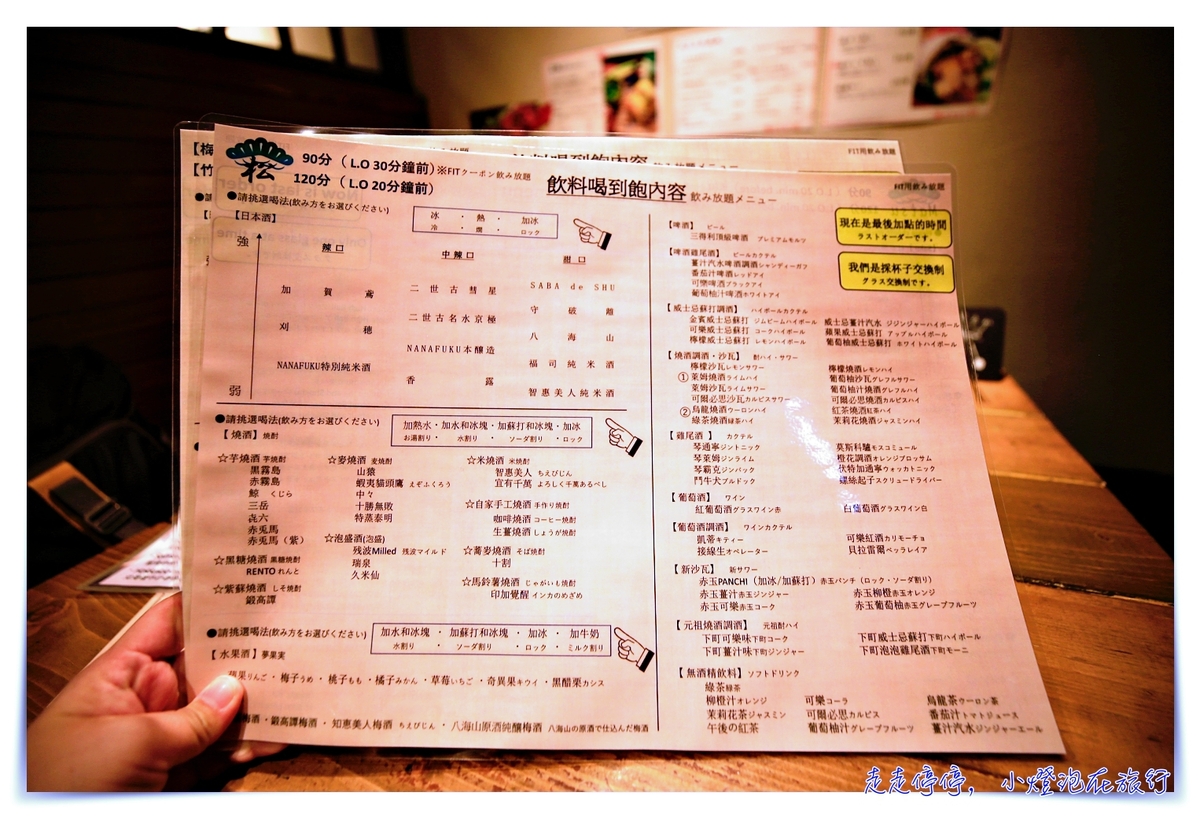 【梅
【竹
飲み放題
飲料喝到飽內容 飲み放題メニュー
FIT用飲み放題
松
90分（L.O 30分鐘前）※FITクーポン飲み放題
120分（L.O 20分鐘前）
飲料喝到飽內容 飲み放題メニュー
FIT用飲み放題
現在是最後加點的時間
ラストオーダーです。
我們是採杯子交換制
グラス交換制です。
●請挑選喝法(飲み方をお選びください)
冰 ・ 熱 ・ 加冰
冷 ・ 燗 ・ ロック
【日本酒】
強 辣口 中辣口 甜口
加賀鳶 二世古彗星 SABA de SHU
守破離
刈穂 二世古名水京極
八海山
NANAFUKU特別純米酒 NANAFUKU本醸造
福司純米酒
香露
弱 智惠美人純米酒
●請挑選喝法(飲み方をお選びください)
加熱水・加水和冰塊・加蘇打和冰塊・加冰
お湯割り ・ 水割り ・ ソーダ割り ・ロック
【燒酒】焼酎
☆芋燒酒 芋焼酎
黒霧島
赤霧島
鯨 くじら
三岳
㐂六
赤兎馬
赤兎馬（紫）
☆黑糖燒酒 黒糖焼酎
RENTO れんと
☆紫蘇燒酒 しそ焼酎
鍛高譚
☆麥燒酒 麦焼酎
山猿
蝦夷貓頭鷹 えぞふくろう
中々
十勝無敗
特蒸泰明
☆泡盛酒(泡盛)
残波Milled 残波マイルド
瑞泉
久米仙
☆米燒酒 米焼酎
智惠美人 ちえびじん
宜有千萬 よろしく千萬あるべし
☆自家手工燒酒 手作り焼酎
咖啡燒酒 コーヒー焼酎
生薑燒酒 しょうが焼酎
☆蕎麥燒酒 そば焼酎
十割
☆馬鈴薯燒酒 じゃがいも焼酎
印加覺醒 インカのめざめ
●請挑選喝法(飲み方をお選びください)
加水和冰塊 ・ 加蘇打和冰塊 ・ 加冰 ・ 加牛奶
水割り ・ ソーダ割り ・ ロック ・ ミルク割り
【水果酒】夢果実
蘋果りんご・梅子うめ・桃子もも・橘子みかん・草莓いちご・奇異果キウイ・黑醋栗カシス
梅酒・鍛高譚梅酒 ・知惠美人梅酒 ちえびじん ・八海山原酒純釀梅酒 八海山の原酒で仕込んだ梅酒
【啤酒】 ビール
三得利頂級啤酒 プレミアムモルツ
【啤酒雞尾酒】 ビールカクテル
薑汁汽水啤酒調酒シャンディーガフ
番茄汁啤酒レッドアイ
可樂啤酒ブラックアイ
葡萄柚汁啤酒ホワイトアイ
【威士忌蘇打調酒】 ハイボールカクテル
金賓威士忌蘇打 ジムビームハイボール 威士忌薑汁汽水 ジンジンジャーハイボール
可樂威士忌蘇打 コークハイボール 蘋果威士忌蘇打 アップルハイボール
檸檬威士忌蘇打 レモンハイボール 葡萄柚威士忌蘇打 ホワイトハイボール
【燒酒調酒・沙瓦】 酎ハイ・サワー
檸檬沙瓦レモンサワー 檸檬燒酒レモンハイ
①萊姆燒酒ライムハイ 葡萄柚沙瓦グレフルサワー
萊姆沙瓦ライムサワー 葡萄柚汁燒酒グレフルハイ
可爾必思沙瓦カルピスサワー 可爾必思燒酒カルピスハイ
②烏龍燒酒ウーロンハイ 紅茶燒酒紅茶ハイ
綠茶燒酒緑茶ハイ 茉莉花燒酒ジャスミンハイ
【雞尾酒】 カクテル
琴通寧ジントニック 莫斯科騾モスコミュール
琴萊姆ジンライム 橙花調酒オレンジブロッサム
琴霸克ジンバック 伏特加通寧ウォッカトニック
鬥牛犬ブルドック 螺絲起子スクリュードライバー
【葡萄酒】 ワイン
紅葡萄酒グラスワイン赤 白葡萄酒グラスワイン白
【葡萄酒調酒】 ワインカクテル
凱蒂キティー 可樂紅酒カリモーチョ
接線生オペレーター 貝拉雷爾ベッラレイア
【新沙瓦】 新サワー
赤玉PANCHI（加冰/加蘇打）赤玉パンチ（ロック・ソーダ割り）
赤玉薑汁赤玉ジンジャー 赤玉柳橙赤玉オレンジ
赤玉可樂赤玉コーク 赤玉葡萄柚赤玉グレープフルーツ
【元祖燒酒調酒】 元祖酎ハイ
下町可樂味下町コーク 下町威士忌蘇打下町ハイボール
下町薑汁味下町ジンジャー 下町泡泡雞尾酒下町モーニ
【無酒精飲料】ソフトドリンク
綠茶緑茶
柳橙汁オレンジ 可樂コーラ 烏龍茶ウーロン茶
茉莉花茶ジャスミン 可爾必思カルピス 番茄汁トマトジュース
午後の紅茶 葡萄柚汁グレープフルーツ 薑汁汽水ジンジャーエール
走走停停，小燈泡在旅行